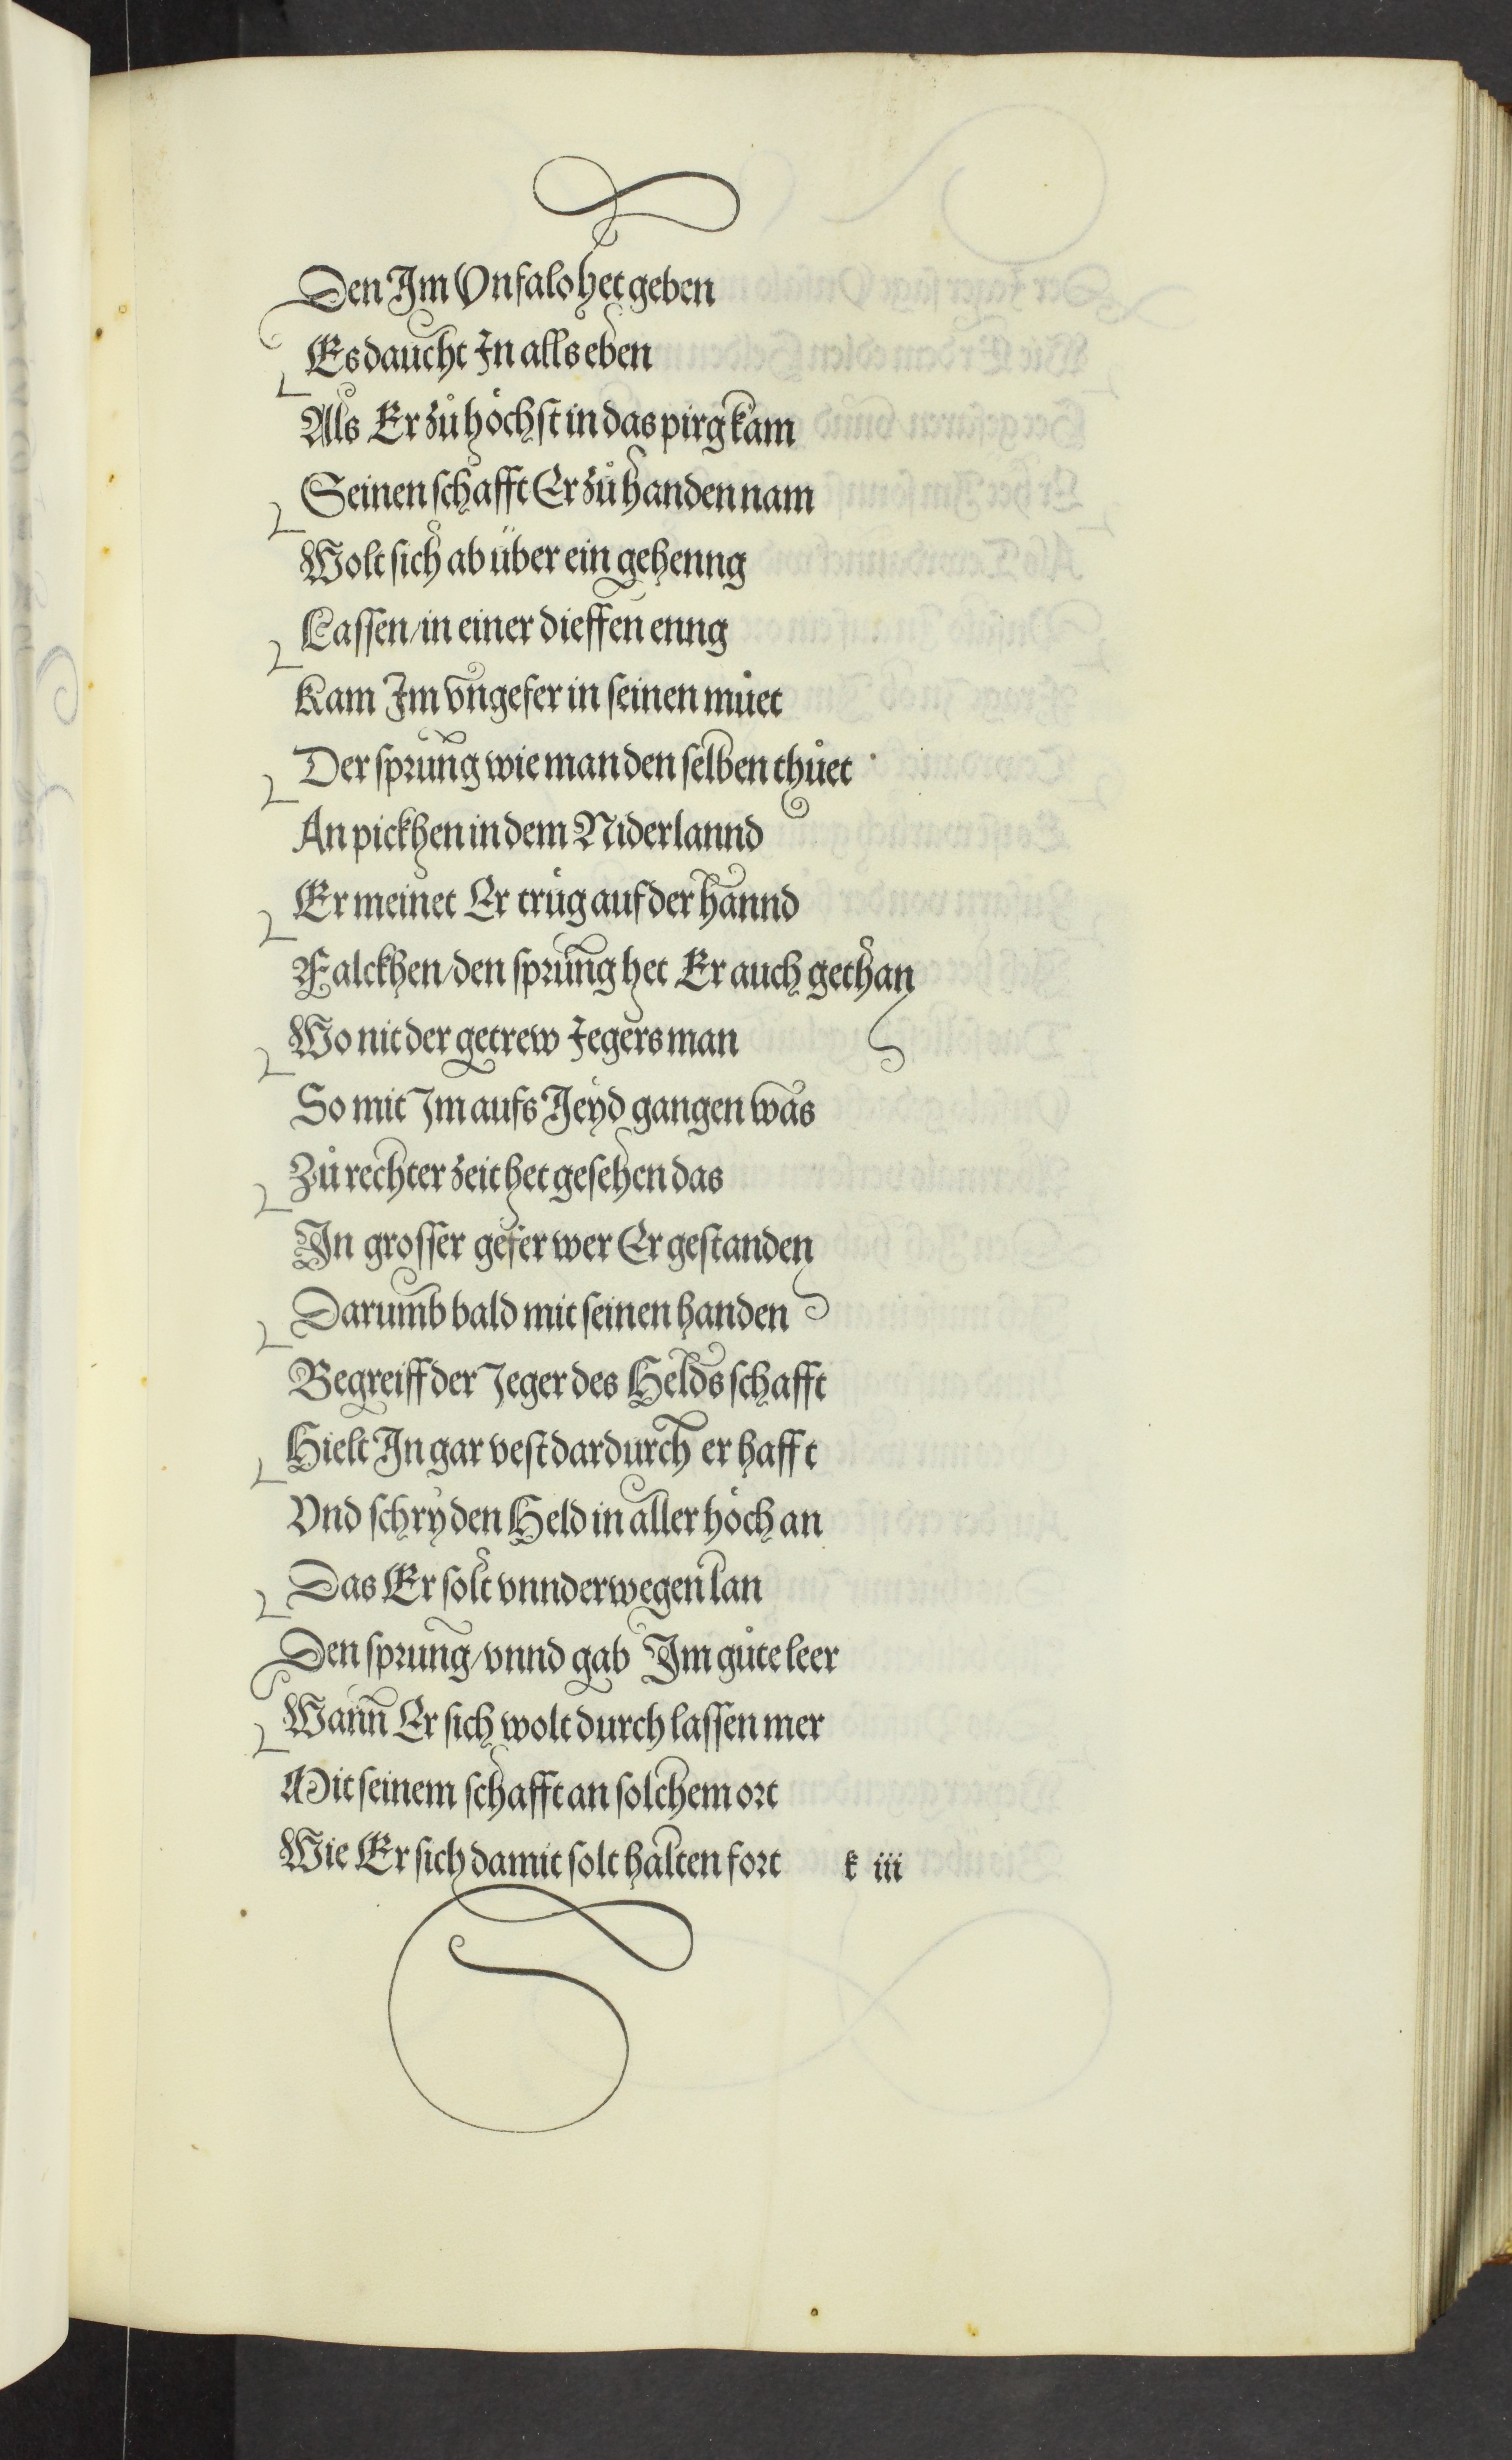 Den Im Vnfalo het geben
Es daucht In alls eben
Als Er zů höchst in das pirg kam
Seinen schafft Er zů handen nam
Wolt sich ab über ein gehenng
Lassen / in einer dieffen enng
Kam Im vngefer in seinen můet
Der sprung wie man den selben thůet
An pickhen in dem Niderlannd
Er meinet Er trůg auf der hannd
Falckhen / den sprung het Er auch gethan
Wo nit der getrew Jegersman
So mit Im aufs Jeyd gangen was
Zů rechter zeit het gesehen das
In grosser gefer wer Er gestanden
Darumb bald mit seinen handen
Begreiff der Jeger des Helds schafft
Hielt In gar vest dardurch er hafft
Vnd schry den Held in aller höch an
Das Er solt vnnderwegen lan
Den sprung / vnnd gab Im gůte leer
Wann Er sich wolt durch lassen mer
Mit seinem schafft an solchem ort
Wie Er sich damit solt halten fort k iii